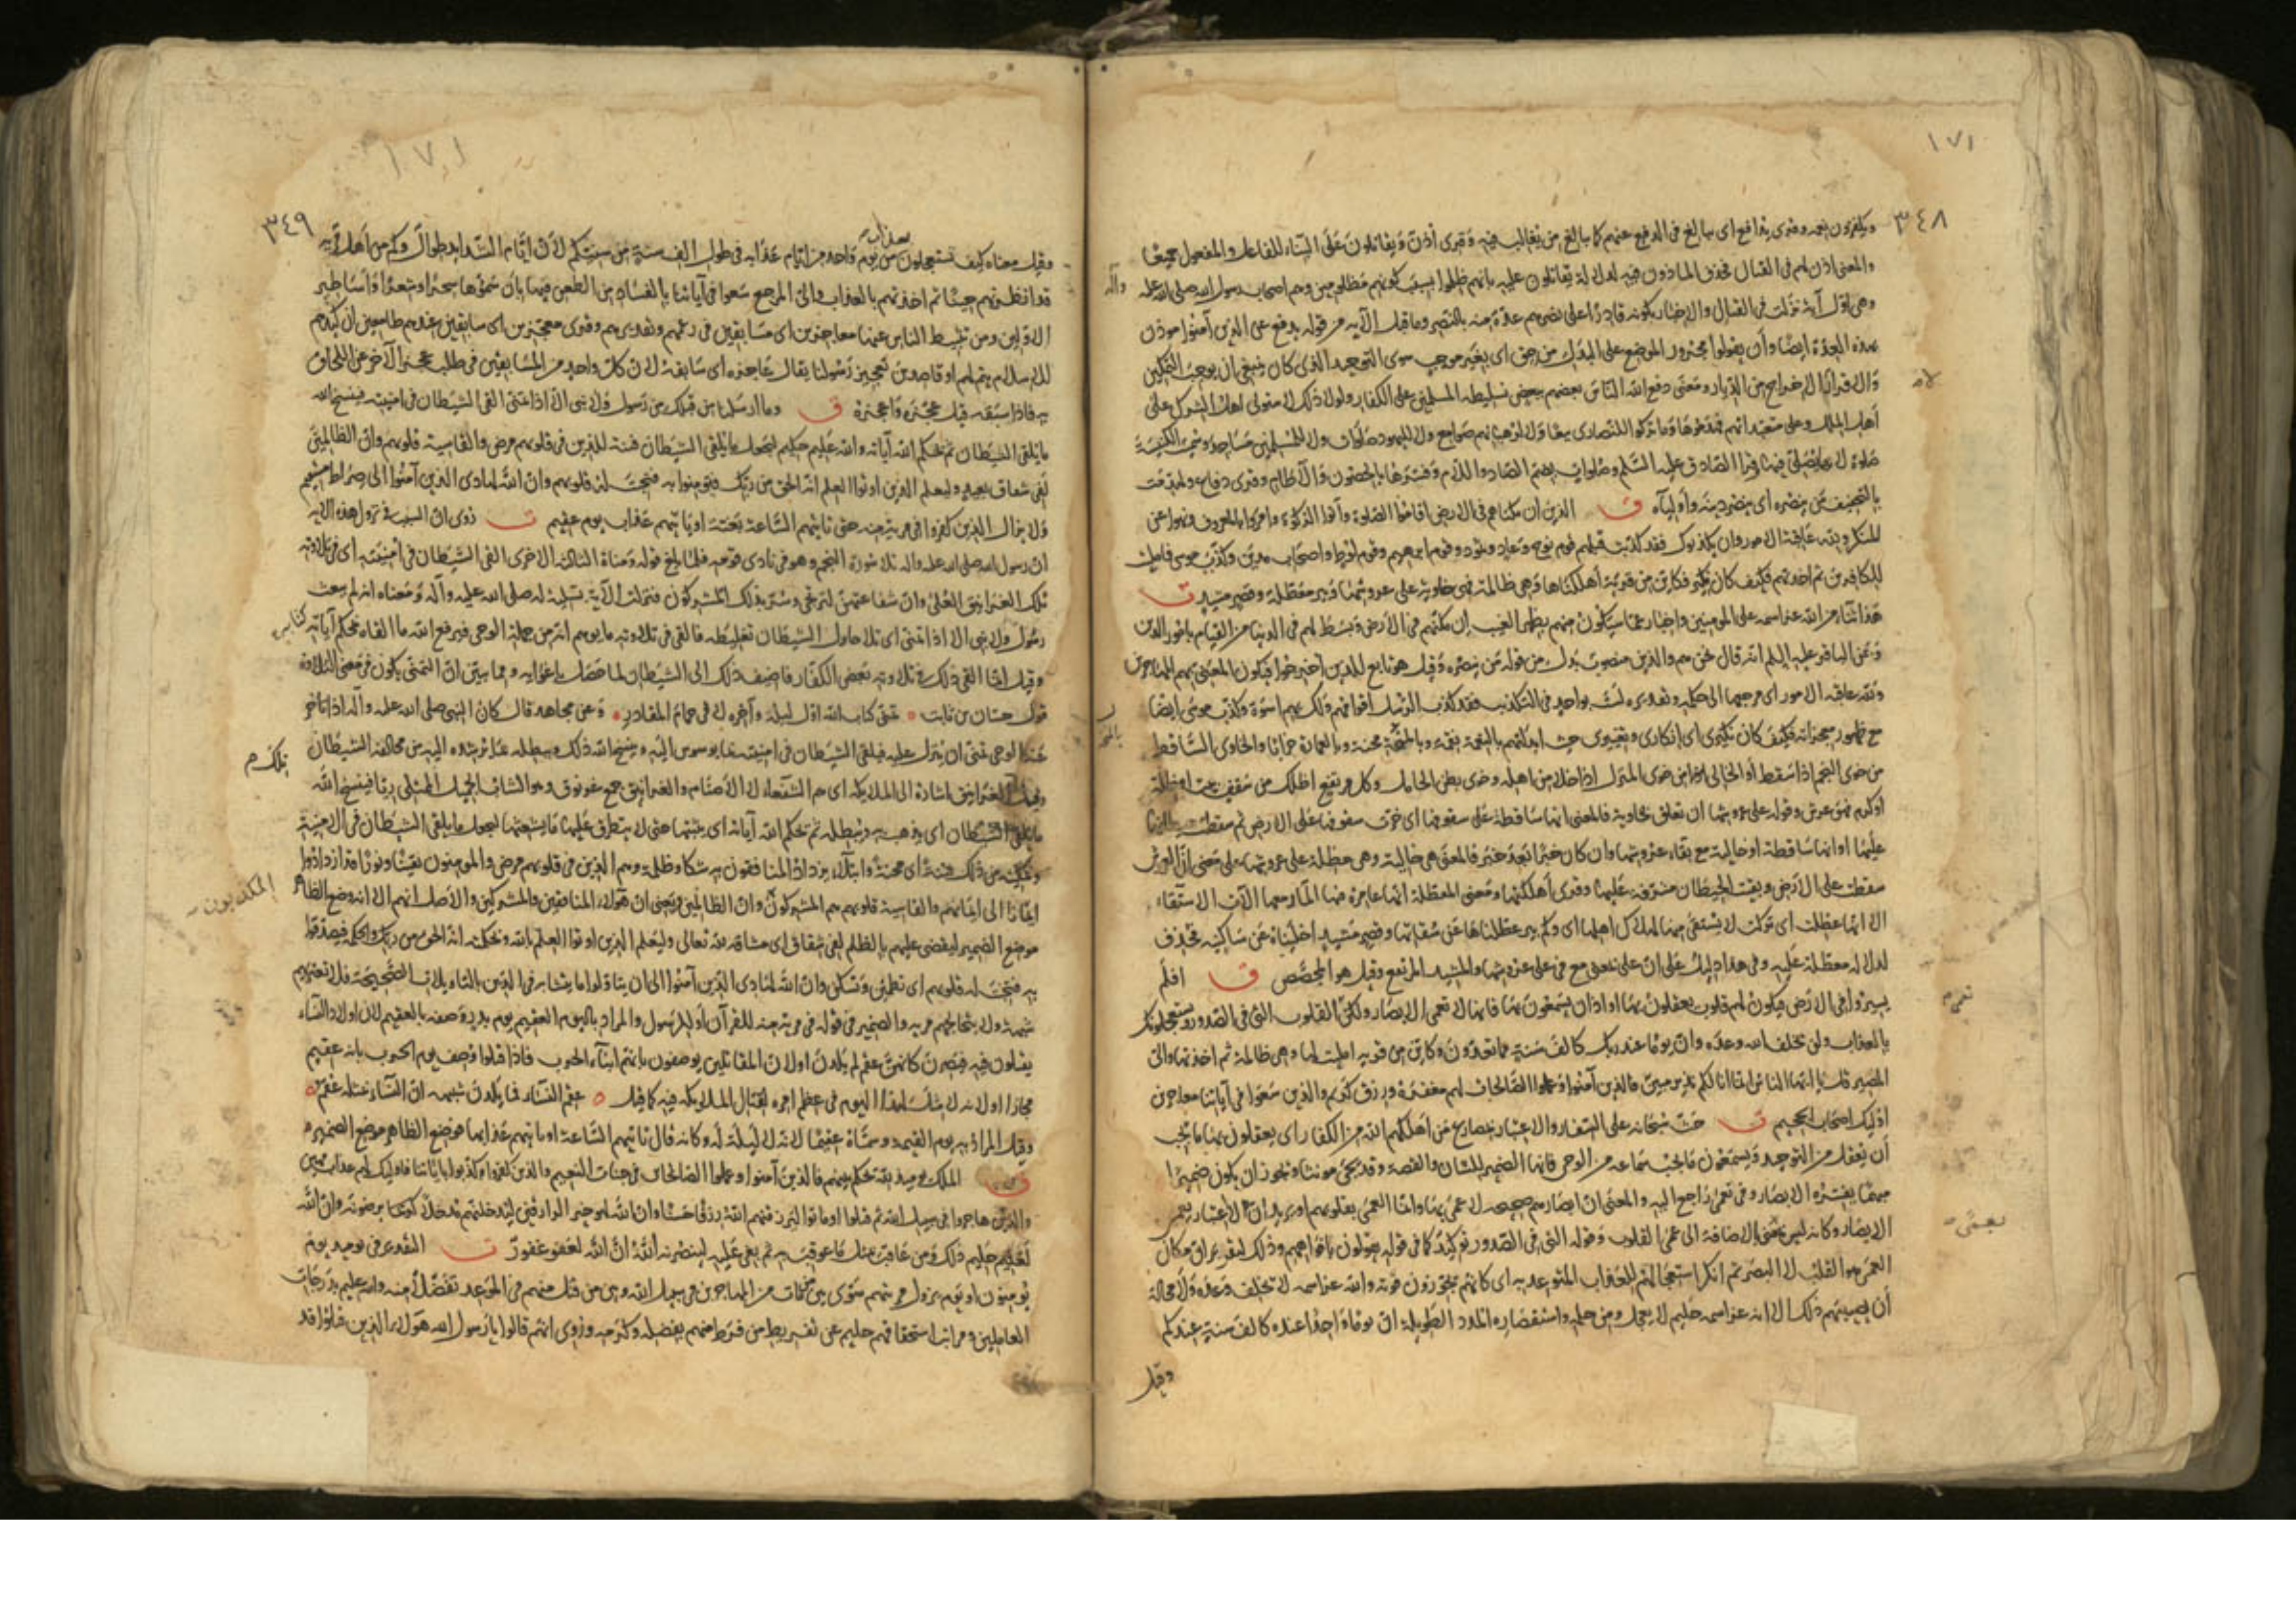 ١٧١
٣٤٨
ويكفرون نعمه وقرى يدافع اى يبالغ فى الدفع عنهم كما يبالغ من يغالب فيه وقرى اذن ويقاتلون على البناء للفاعل والمفعول جميعا
والمعنى اذن لهم فى القتال فحذف الماذون فيه لدلالة يقاتلون عليه بانهم ظلموا بسبب كونهم مظلومين وهم اصحاب رسول الله صلى الله عليه
وآله
وهى اول آية نزلت فى القتال والاخبار بكونه قادرا على نصرهم عدة منه بالنصر وما قبل الآية من قوله يدفع عن الذين آمنوا موذن
بهذه العدة ايضا وأن يقولوا مجرور الموضع على البدل من حق اى بغير موجب سوى التوحيد الذى كان ينبغى ان يوجب التمكين
والاقرار لا الاخراج من الديار ومعنى دفع الله الناس بعضهم ببعض تسليطه المسلمين على الكفار ولولا ذلك لاستولى اهل الشرك على
أهل الملل وعلى متعبداتهم فهدموها وما تركوا للنصارى بيعا ولا لرهبانهم صوامع ولا لليهود صلوات ولا للمسلمين مساجد وسميت الكنيسة
صلوة لانه يصلى فيها وقرأ الصادق عليه السلم وصلوات بضم الصاد واللام وفسرها بالحصون والآطام وقرى دفاع ولهدمت
بالتخفيف من ينصره اى ينصر دينه واولياءه ق الذين ان مكناهم فى الارض اقاموا الصلوة وآتوا الزكوة وامروا بالمعروف ونهوا عن
المنكر ولله عاقبة الامور وان يكذبوك فقد كذبت قبلهم قوم نوح وعاد وثمود وقوم ابرهيم وقوم لوط واصحاب مدين وكذب موسى فامليت
للكافرين ثم اخذتهم فكيف كان نكير فكاين من قرية أهلكناها وهى ظالمة فهى خاوية على عروشها وبئر معطلة وقصر مشيد ت
هذا ثناء من الله عز اسمه على المومنين واخبار عما سيكون منهم بظهر الغيب ان مكنهم فى الارض وبسط لهم فى الدنيا من القيام بامور الدين
وعن الباقر عليه السلم انه قال نحن هم والذين منصوب بدل من قوله من ينصره وقيل هو تابع للذين اخرجوا فيكون المعنى بهم المهاجرين
ولله عاقبة الامور اى مرجعها الى حكمه وتقديره لست بواحد فى التكذيب فقد كذب الرسل اقوامهم ولك بهم اسوة وكذب موسى ايضا
مع ظهور معجزاته فكيف كان نكيرى اى انكارى وتغييرى حيث ابدلتهم بالنعمة نقمة وبالمنحة محنة وبالعمارة خرابا والخاوى الساقط
من خوى النجم اذا سقط أو الخالى من خوى المنزل اذا خلا من اهله وخوى بطن الحامل وكل مرتفع اظلك من سقف بيت او مظلة
او كرم فهو عرش وقوله على عروشها ان تعلق بخاوية فالمعنى انها ساقطة على سقوفها اى خرت سقوفها على الارض ثم سقطت
عليها او انها ساقطة او خالية مع بقاء عروشها وان كان خبرا بعد خبر فالمعنى هى خالية وهى مظلة على عروشها على معنى ان العروش
سقطت على الارض وبقيت الحيطان مشرفة عليها وقرى أهلكتها ومعنى المعطلة انها عامرة فيها الماء ومعها آلات الاستقاء
الا انها عطلت اى تركت لا يستقى منها لهلاك اهلها اى وكم بئر عطلناها عن سقاتها وقصر مشيد اخليناه عن ساكنيه فحذف
لدلالة معطلة عليه وفى هذا دليل على ان على بمعنى مع فى على عروشها والمشيد المرتفع وقيل هو المجصص ق افلم
يسيروا فى الارض فيكون لهم قلوب يعقلون بها او اذان يسمعون بها فانها لا تعمى الابصار ولكن القلوب التى فى الصدور ويستعجلونك
بالعذاب ولن يخلف الله وعده وان يوما عند ربك كالف سنة مما تعدون وكاين من قرية امليت لها وهى ظالمة ثم اخذتها والى
المصير قل يا ايها الناس انما انا لكم نذير مبين فالذين آمنوا وعملوا الصالحات لهم مغفرة ورزق كريم والذين سعوا فى آياتنا معاجزين
اوليك اصحاب الجحيم ت حث سبحانه على السفر والاعتبار بمصارع من أهلكهم الله من الكفار اى يعقلون بها ما يجب
أن يعقل من التوحيد ويسمعون ما يجب سماعه من الوحى فانها الضمير للشان والقصة وقد يجئ مونثا ويجوز ان يكون ضميرا
مبهما يفسره الابصار وفى تعمى راجع اليه والمعنى ان ابصارهم صحيحة لا عمى بها وانما العمى بقلوبهم او يريد ان لا اعتبار بعمى
الابصار وكانه ليس بعمى بالاضافة الى عمى القلوب وقوله التى فى الصدور توكيد كما فى قوله يقولون بافواههم وذلك ليتقرر ان مكان
العمى هو القلب لا البصر ثم انكر استعجالهم للعذاب المتوعد به اى كانهم يجوزون فوته والله عز اسمه لا يخلف وعده ولا محالة
أن يصيبهم ذلك الا انه عز اسمه حليم لا يعجل ومن حلمه واستقصاره المدد الطويلة ان يوما واحدا عنده كالف سنة عندكم
وقيل
تعمى م
بعمى
١٧١
٣٤٩
بعذاب
وقيل معناه كيف تستعجلون من يوم واحد من ايام عذابه فى طول الف سنة من سنيكم لان ايام الشدايد طوال وكم من اهل قرية
قد انظرتهم حينا ثم اخذتهم بالعذاب والى المرجع سعوا فى آياتنا بالفساد من الطعن فيها بان سموها سحرا وشعرا واساطير
الاولين ومن تثبيط الناس عنها معاجزين اى مسابقين فى زعمهم وتقديرهم وقرى معجزين اى سابقين طامعين ان كيدهم
للاسلام يتم لهم او قاصدين تعجيز رسولنا يقال عاجزه اى سابقه لان كل واحد من المتسابقين فى طلب عجز الآخر عن اللحاق
به فاذا سبقه قيل عجزه واعجزه ق وما ارسلنا من قبلك من رسول ولا نبى الا اذا تمنى القى الشيطان فى امنيته فينسخ الله
ما يلقى الشيطان ثم يحكم الله آياته والله عليم حكيم ليجعل ما يلقى الشيطان فتنة للذين فى قلوبهم مرض والقاسية قلوبهم وان الظالمين
لفى شقاق بعيد وليعلم الذين اوتوا العلم انه الحق من ربك فيؤمنوا به فتخبت له قلوبهم وان الله لهادى الذين آمنوا الى صراط مستقيم
ولا يزال الذين كفروا فى مرية منه حتى تاتيهم الساعة بغتة او ياتيهم عذاب يوم عقيم ت روى ان السبب فى نزول هذه الآية
ان رسول الله صلى الله عليه واله تلا سورة النجم وهو فى نادى قومه فلما بلغ قوله ومناة الثالثة الاخرى القى الشيطان فى أمنيته اى فى تلاوته
تلك الغرانيق العلى وان شفاعتهن لترتجى وسر بذلك المشركون فنزلت الآية تسلية له صلى الله عليه وآله ومعناه انه لم يبعث
رسول ولا نبى الا اذا تمنى اى تلا حاول الشيطان تغليطه فالقى فى تلاوته ما يوهم انه من جملة الوحى فيرفع الله ما القاه بمحكم آياته
وقيل انما القى ذلك فى تلاوته بعض الكفار فاضيف ذلك الى الشيطان لما حصل باغوايه ومما يبين ان التمنى يكون فى معنى التلاوة
قول حسان بن ثابت تمنى كتاب الله اول ليلة وآخره لاقى حمام المقادر وعن مجاهد قال كان النبى صلى الله عليه وآله اذا تاخر
عنه الوحى تمنى ان ينزل عليه فيلقى الشيطان فى امنيته بما يوسوس اليه وينسخ الله ذلك ويبطله بما يرشده اليه من مخالفة الشيطان
وقيل الغرانيق اشارة الى الملايكة اى هم الشفعاء لا الاصنام والغرانيق جمع غرنوق وهو الشاب الجميل الممتلى ريا فينسخ الله
تلك م
ما يلقى الشيطان اى يذهب به ويبطله ثم يحكم الله آياته اى يثبتها حتى لا يتطرق عليها ما يشعثها ليجعل ما يلقى الشيطان فى الامنية
من ذلك فتنة اى محنة وابتلاء يزداد المنافقون به شكا وظلمة وهم الذين فى قلوبهم مرض والمومنون يقينا ونورا قد ازدادوا
ايمانا الى ايمانهم والقاسية قلوبهم هم المشركون وان الظالمين يعنى ان هولاء المنافقين والمشركين والاصل انهم الا انه وضع الظاهر
المكذبون
موضع الضمير ليقضى عليهم بالظلم لفى شقاق اى مشاقة لله تعالى وليعلم الذين اوتوا العلم بالله وبحكمته انه الحق من ربك والحكمة فيصدقوا
به فتخبت له قلوبهم اى تطمئن وتسكن وان الله لهادى الذين آمنوا الى ان يتاولوا ما يتشابه فى الدين بالتاويلات الصحيحة فلا تعتريهم
شبهة ولا يخالجهم مرية والضمير فى قوله فى مرية منه للقرآن او للرسول والمراد باليوم العقيم يوم بدر وصفه بالعقيم لان اولاد النساء
يقتلون فيه فيصرن كانهن عقم لم يلدن او لان المقاتلين يوصفون بانهم ابناء الحرب فاذا قتلوا وصف يوم الحرب بانه عقيم
مجازا او لانه لا مثل لهذا اليوم فى عظم امره لقتال الملايكة فيه كما قيل عقم النساء فما يلدن شبيهه ان النساء بمثله عقم
وقيل المراد به يوم القيمة وسماه عقيما لانه لا ليلة له وكانه قال تاتيهم الساعة او ياتيهم عذابها فوضع الظاهر موضع الضمير
ق الملك يوميذ لله يحكم بينهم فالذين آمنوا وعملوا الصالحات فى جنات النعيم والذين كفروا وكذبوا باياتنا فاوليك لهم عذاب مهين
والذين هاجروا فى سبيل الله ثم قتلوا او ماتوا ليرزقنهم الله رزقا حسنا وان الله لهو خير الرازقين ليدخلنهم مدخلا يرضونه وان الله
لعليم حليم ذلك ومن عاقب بمثل ما عوقب به ثم بغى عليه لينصرنه الله ان الله لعفو غفور ت التقدير فى يوميذ يوم
يومنون او يوم يزول مريتهم سوى بين من مات من المهاجرين فى سبيل الله وبين من قتل منهم فى الموعد تفضلا منه والله عليم بدرجات
العاملين ومراتب استحقاقهم حليم عن تفريط من فرط منهم بفضله وكرمه وروى انهم قالوا يا رسول الله هولاء الذين قتلوا قد